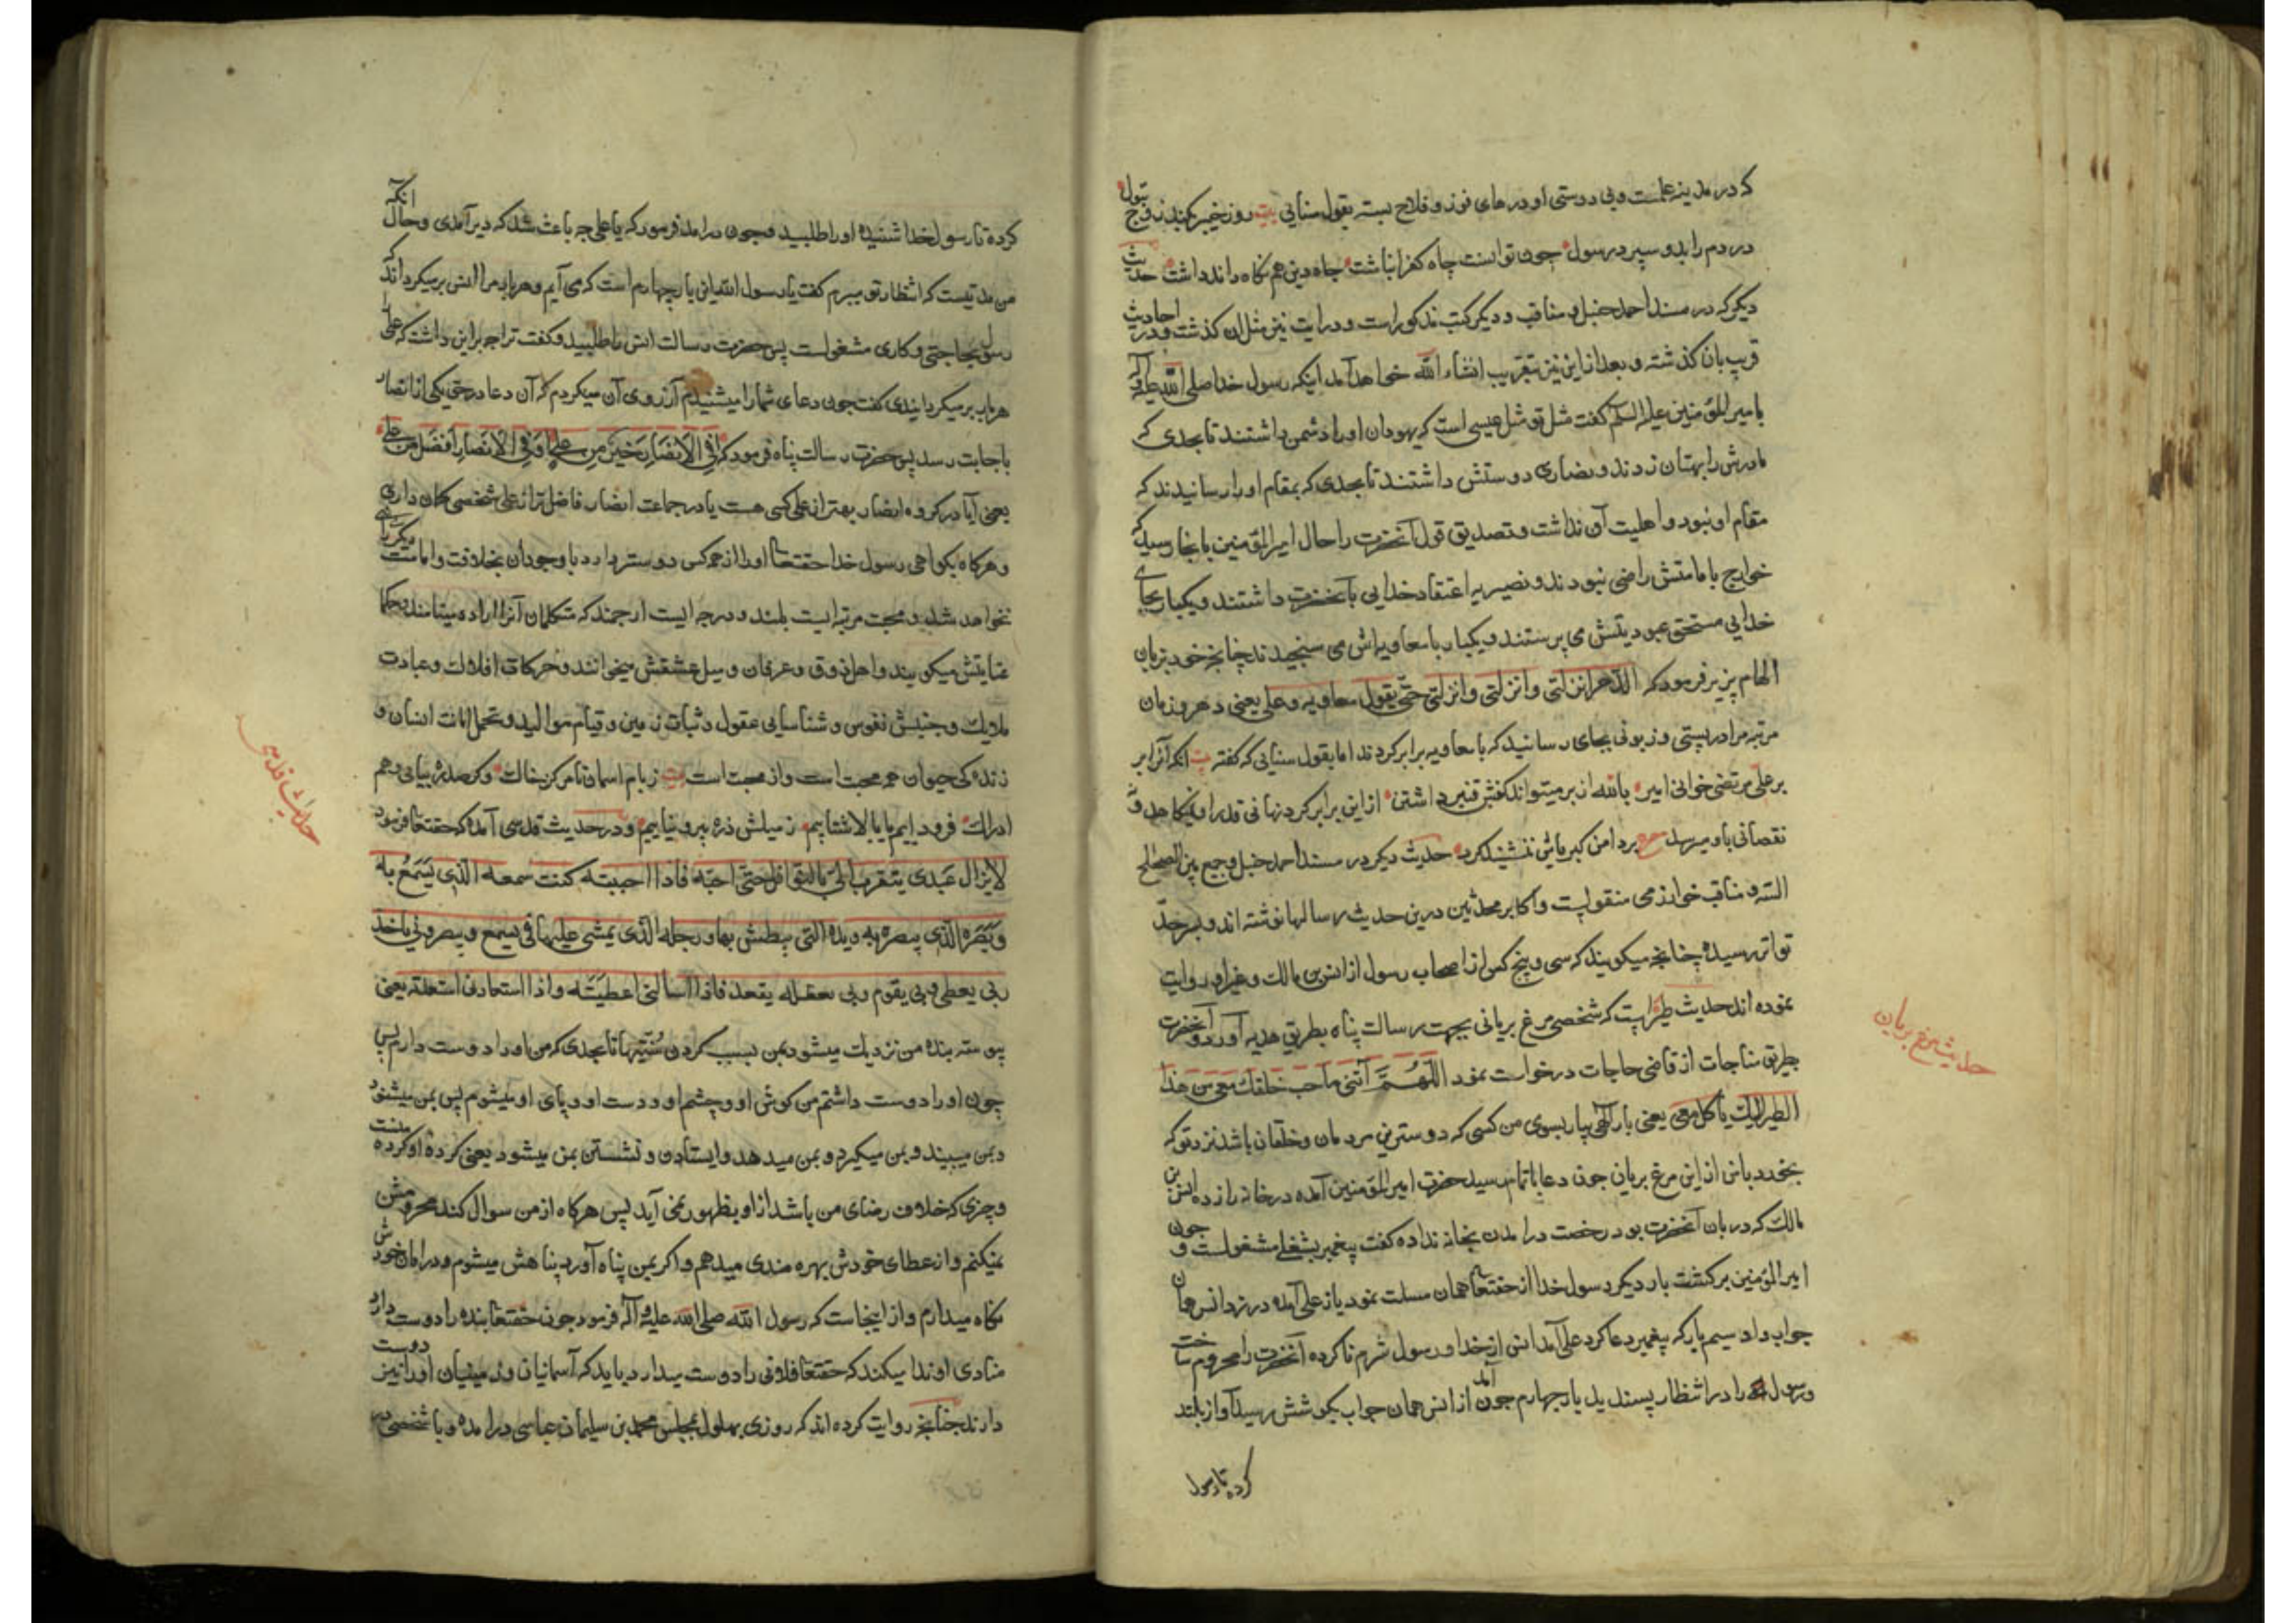 که در مدینه علمست وبی دوستی او درهای فوز و فلاح بسته بقول سنایی بیت روز خیبر بکند زوج بتول
در دم را بدو سپرد رسول جون توانست چاه کفر انباشت جاه دین هم نکاه داند داشت حدیث
دیکر که در مسند احمد حنبل و مناقب و دیکر کتب مذکور است و در ایت نیز مثل ان کذشت و در احادیث
قریب بان کذشته و بعد از این نیز بتقریب انشاء الله خواهد آمد اینکه رسول خدا صلی الله علیه و آله
با میر المؤمنین علیه السلم کفت مثل تو مثل عیسی است که یهودان او را دشمن داشتند تا بحدی که
مادرش را بهتان زدند و نصاری دوستش داشتند تا بحدی که بمقام او را رسانیدند که
مقام او نبود و اهلیت آن نداشت و تصدیق قول آنحضرت را حال امیر المؤمنین بانجا رسید که
خوارج بامامتش راضی نبودند و نصیریه اعتقاد خدایی بآنحضرت داشتند و یکبار بجای
خدایی مستحق عبودیتش می پرستند و یکبار با معاویه اش می سنجیدند چنانچه خود بزبان
الهام پزیر فرمود که الدهر انزلنی و انزلنی و انزلنی حتی یقول معاویه و علی یعنی دهر و زمان
مرتبه مرا در پستی و زبونی بجای رسانید که با معاویه برابر کردند اما بقول سنایی که کفته بیت انکه آنرا بر
بر علی مرتضی خوانی امیر بالله از بر میتواند کفش قنبر داشتن از این برابر کردنها نی قدر او میکاهد و نه
نقصانی باو میرسد مصرع بر دامن کبریاش ننشیند کرد حدیث دیکر در مسند احمد حنبل و جمع بین الصحاح
السته و مناقب خوارزمی منقولست و اکابر محدثین درین حدیث رسالها نوشته اند و بسر حد
تواتر رسیده چنانچه میکویند که سی و پنج کس از اصحاب رسول از انس بن مالک و غیر او روایت
نموده اند حدیث طیر است که شخصی مرغ بریانی بجهت رسالت پناه بطریق هدیه آورد و آنحضرت
بطریق مناجات از قاضی حاجات درخواست نمود اللهم آتنی باحب خلقک معی من هذا
الطیر الیک یاکل معی یعنی بار الهی بیار بسوی من کسی که دوسترین مردمان و خلقان باشد نزد تو که
بخورد با من از این مرغ بریان جون دعا باتمام رسید حضرت امیر المؤمنین آمده در خانه را زده انس بن
مالک که دربان آنحضرت بود رخصت در امدن بخانه نداده کفت پیغمبر بشغلی مشغولست و جون
امیر المؤمنین برکشت بار دیکر رسول خدا از حقتعا همان مسلت نمود باز علی آمده در زد انس همان
جواب داد سیم بار که پیغمبر دعا کرد علی آمد انس از خدا و رسول شرم ناکرده آنحضرت را محروم ساخت
و رسول را در انتظار پسندید بار جهارم جون آمد از انس همان جواب بکوشش رسید آواز بلند
کرده تا رسول
حدیث مرغ بریان
کرده تا رسول خدا شنیده او را طلبید و جون در امد فرمود که یا علی جه باعث شد که دیر آمدی و حال انکه
من مدتیست که انتظار تو میبرم کفت یا رسول الله این بار چهارم است که می آیم و هر بار مرا انس برمیکرداند که
رسول بحاجتی و کاری مشغولست پس حضرت رسالت انس را طلبید و کفت ترا جه بر این داشت که علی را
هر بار برمیکردانیدی کفت جون دعای شما را میشنیدم آرزوی آن میکردم که آن دعا در حق یکی از انصار
باجابت رسد پس حضرت رسالت پناه فرمود که افی الانصار خیر من علی او فی الانصار افضل من علی
یعنی آیا در کروه انصار بهتر از علی کسی هست یا در جماعت انصار فاضل تر از علی شخصی کمان داری
و هرکاه بکواهی رسول خدا حقتعا او را از همه کس دوستر دارد با وجود آن بخلافت و امامت دیکری
نخواهد شد و محبت مرتبه ایست بلند و درجه ایست ارجمند که متکلمان آنرا اراده مینامند و حکما
عنایتش میکویند و اهل ذوق و عرفان و سیل عشقش میخوانند و حرکات افلاک و عبادت
ملایک و جنبش نفوس و شناسایی عقول و ثبات زمین و قیام موالید و تحمل امانت انسان و
زنده کی حیوان همه محبت است و از محبت است بیت ز بام اسمان تا مرکز خاک و کر صد ره بیانی وهم
ادراک فرود اییم یا بالا شتابیم ز میلش ذره بیرون نیابیم و در حدیث قدسی آمده که حقتعا فرمود
لایزال عبدی یتقرب الی بالنوافل حتی احبه فاذا احببته کنت سمعه الذی یسمع به
و بصره الذی یبصره به و یده التی یبطش بها و رجله الذی یمشی علیها فبی یسمع و بی یبصر و بی یاخذ
وبی یعطی و بی یقوم و بی یقعد فاذا سألنی اعطیته و اذا استعاذنی استعذته یعنی
پیوسته بنده من نزدیک میشود بمن بسبب کردن سنتیها تا بحدی که من او را دوست دارم پس
چون او را دوست داشتم من کوش او و چشم او و دست او و پای او میشوم پس بمن میشنود
و بمن میبیند و بمن میکیرد و بمن میدهد و ایستادن و نشستن بمن میشود یعنی کرده او کرده منست
و چیزی که خلاف رضای من باشد از او بظهور نمی آید پس هرکاه از من سوال کند محرومش
نمیکنم و از عطای خودش بهره مندی میدهم و اکر بمن پناه آورد پناهش میشوم و در امان خودش
نکاه میدارم و از اینجاست که رسول الله صلی الله علیه و آله فرمود جون حقتعا بنده را دوست دارد
منادی او ندا میکند که حقتعا فلانی را دوست میدارد باید که آسمانیان و زمینیان او را نیز دوست
دارند چنانچه روایت کرده اند که روزی بهلول بمجلس محمد بن سلیمان عباسی در امده و با شخصی در
حدیث قدسی